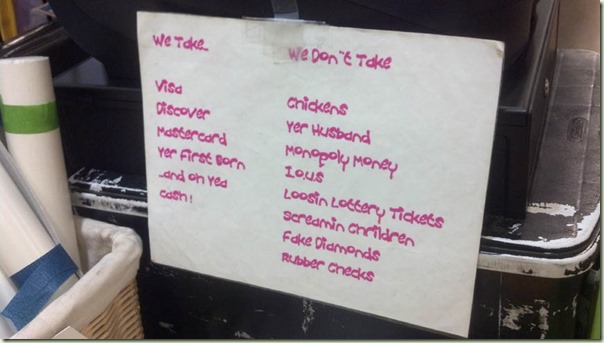 We Take...
Visa
Discover
Mastercard
Yer First Born
...and oh yea
Cash!
We Don't Take
Chickens
Yer Husband
Monopoly Money
I.O.U.S
Loosin Lottery Tickets
Screamin Chrildren
Fake Diamonds
Rubber Checks